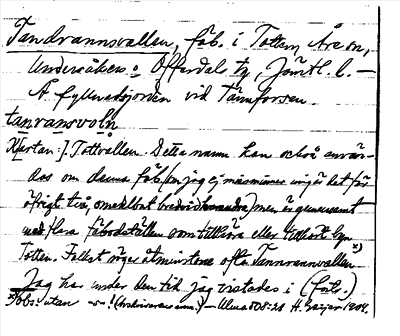 Tandrannsvallen, fäb. i Totten, Åre sn,
Undersåkers o. Offerdals tg, Jämtl. l. —
Å fyllevidsjorden vid Tännforsen.
tanransvoln
Kartan: J. Tottvallen. Detta namn kan också använ-
das om denna fäb. (om jag ej missminner mig är det för
övrigt två, omedelbart bredvid varandra) men är gemensamt
med flera fäbodställen som tillhöra eller tillhört byn
Totten. Folket säger åtminstone ofta Tannrannvallen x)
Jag har under den tid jag vistades i (forts.)
x) Obs. utan -s- ! (Arkivarens anm.) — Ulma 508:21 H. Geijer 1904.